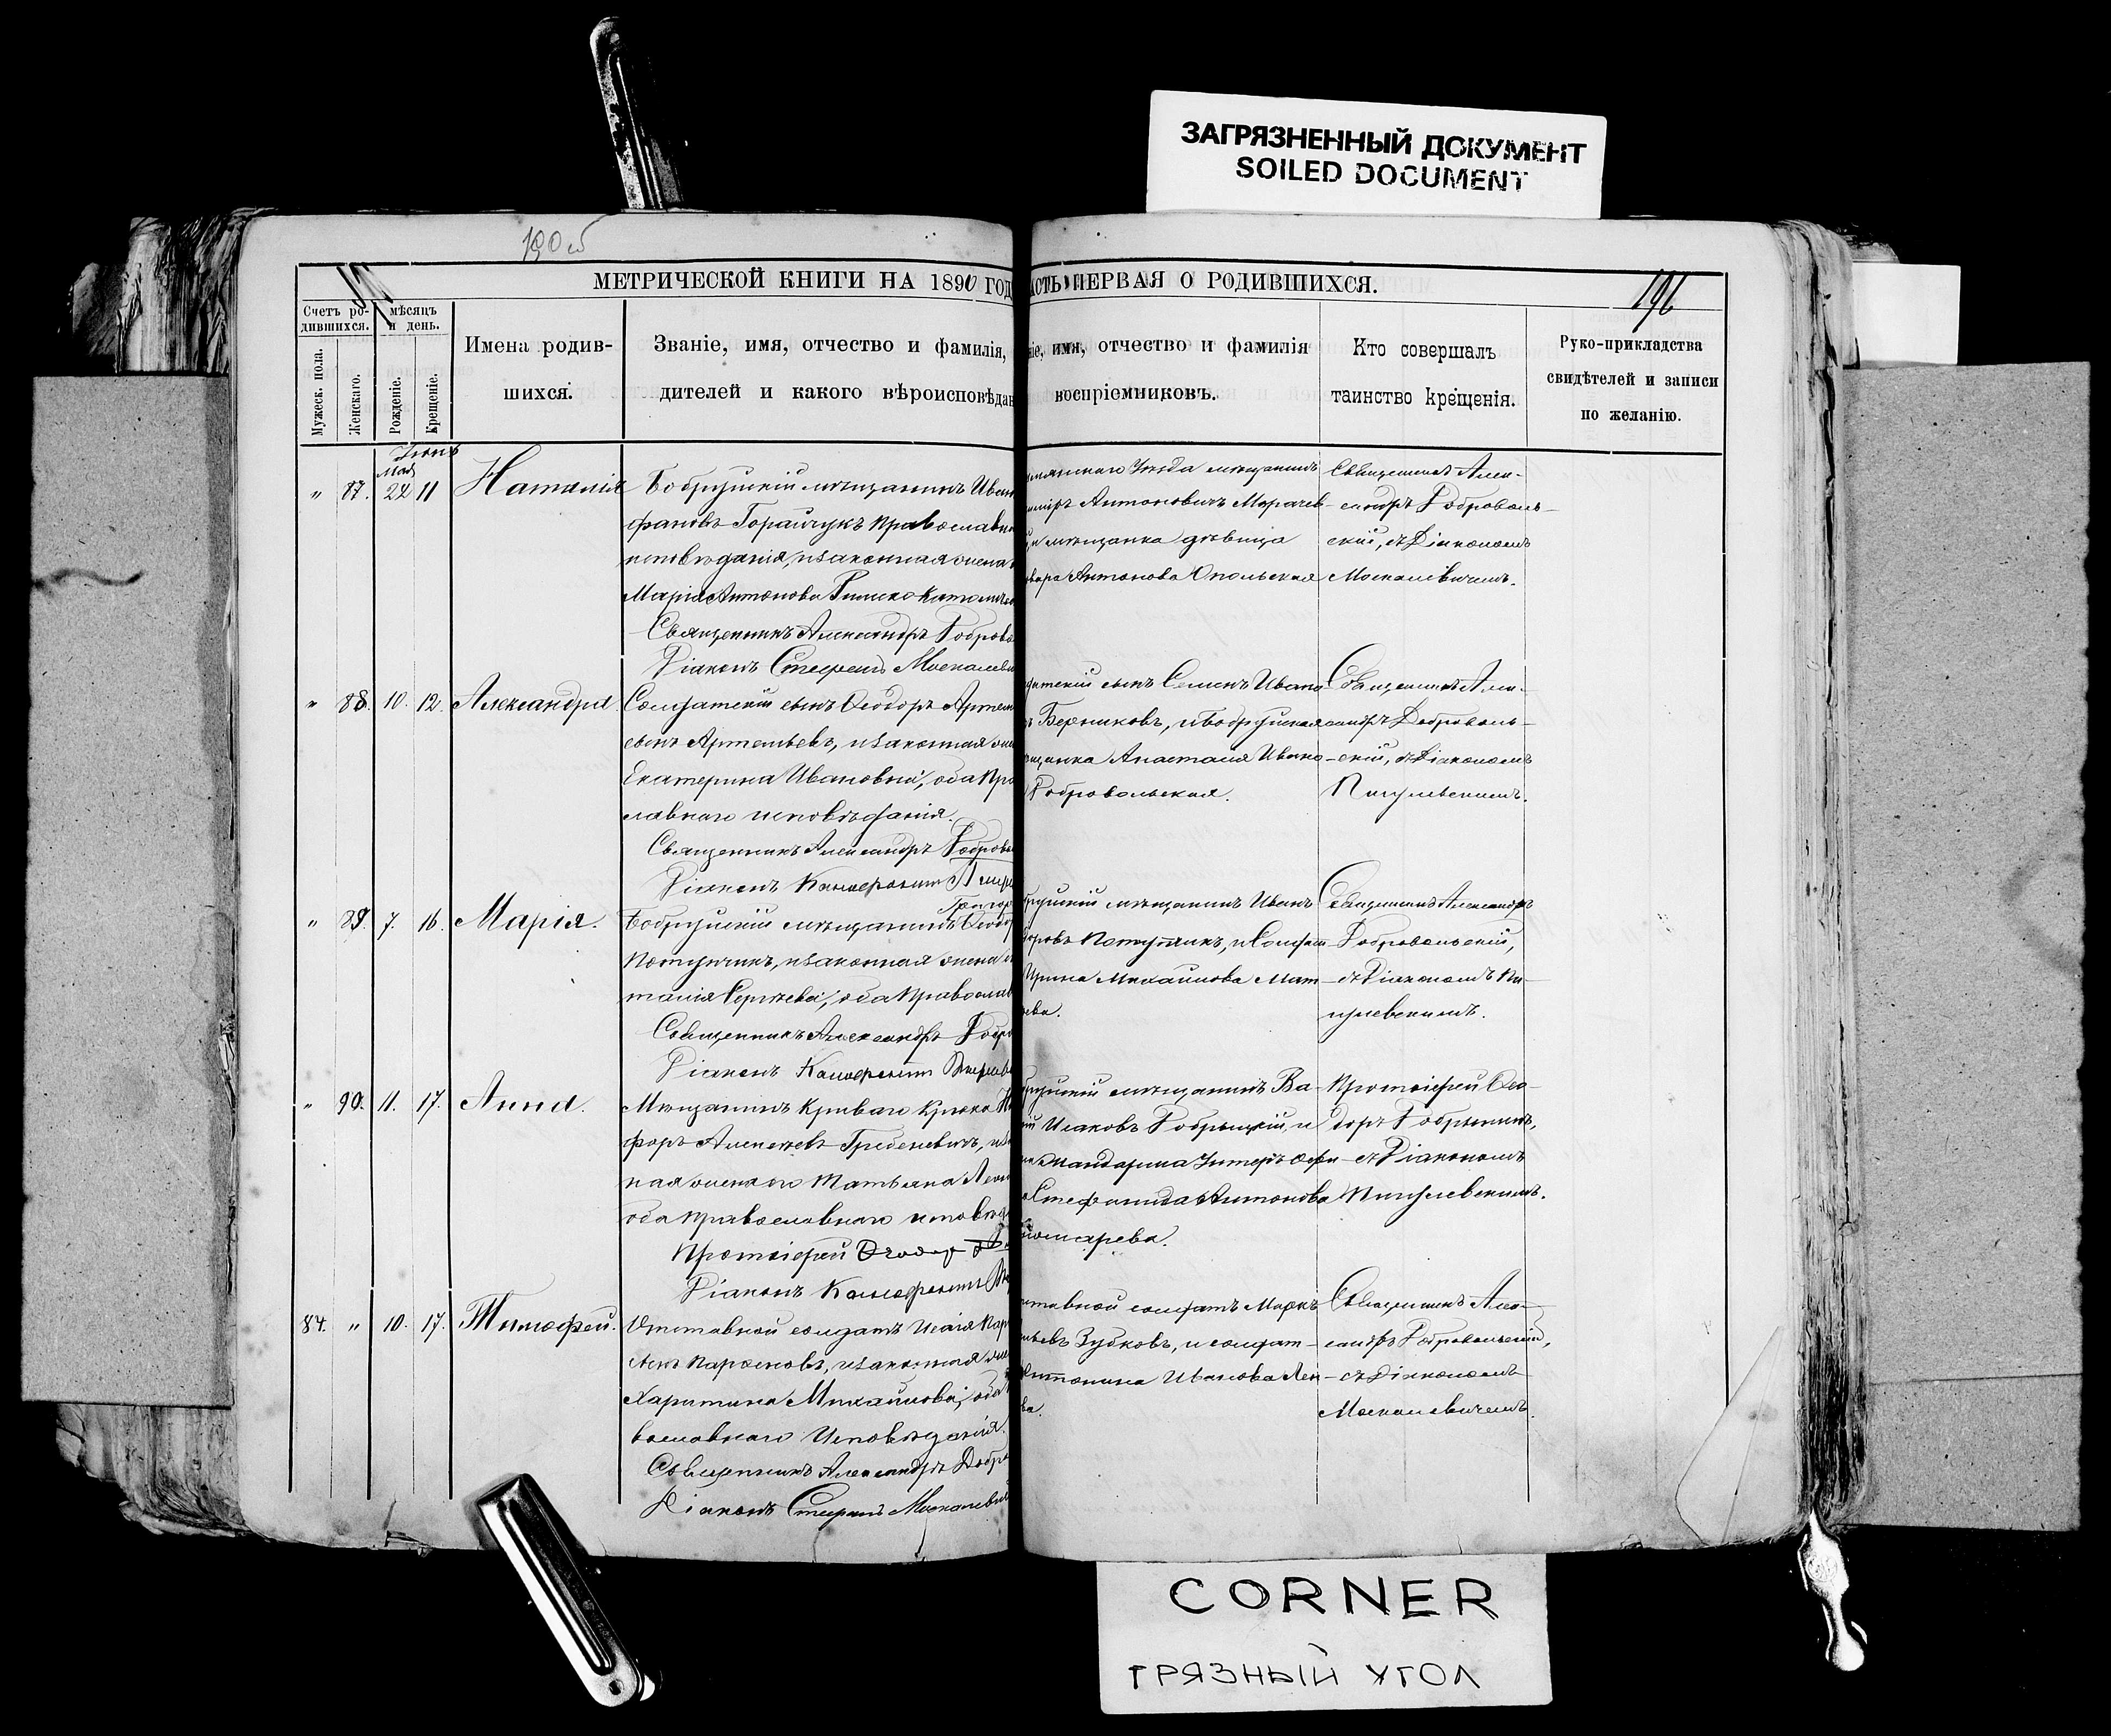 ЗАГРЯЗНЕННЫЙ ДОКУМЕНТ
SOILED DOCUMENT
МЕТРИЧЕСКОЙ КНИГИ НА 1890 ГОД
АСТЬ ПЕРВАЯ О РОДИВШИХСЯ.
196
Счетъ ро-
дившихся.
Мужеск. пола.
Женскаго.
мѣсяцъ
и день.
Рожденіе.
Крещеніе.
Имена родив-
шихся.
Званіе, имя, отчество и фамилія,
дителей и какого вѣроисповѣдан
ніе, имя, отчество и фамилія
воспріемниковъ.
Кто совершалъ
таинство крещенія.
Руко-прикладства
свидѣтелей и записи
по желанію.
Май Іюнь
" 87. 22 11 Наталія
Бобруйскій мѣщанинъ Иван
фановъ Горайчукъ Православна
исповѣданія, и законная жена
Марія Антонова Римско Католич
Священникъ Александръ Доброво
Діаконъ Стефанъ Москалеви
уѣзда мѣщанинъ
Антоновичъ Морачев-
и мѣщанка дѣвица
вара Антонова Опольская
Священникъ Алек-
сандръ Доброволь-
скій, съ Діакономъ
Москалевичемъ.
" 88. 10. 12. Александра.
Солдатскій сынъ Ѳеодоръ Артем
сынъ Артемьевъ, и законная же
Екатерина Ивановна, оба Пра
лавнаго исповѣданія.
Священникъ Александръ Доброво
Діаконъ
датскій сынъ Семенъ Ивано
Берниковъ, и Бобруйская
щанка Анастасія Ивано
Добровольская.
Священникъ Алек-
сандръ Доброволь-
скій, съ Діакономъ
Пигулевскимъ.
" 89. 7. 16. Марія.
Григор
Бобруйскій мѣщанинъ Ѳеодо
Потупчикъ, и законная жена е
талія Сергѣева, оба Православ
Священникъ Александръ Добро
Діаконъ
бруйскій мѣщанинъ Иванъ
доровъ Потупчикъ, и Солдат
Ирина Михайлова Мат
ева.
Священникъ Александръ
Добровольскій,
съ Діакономъ Пи-
гулевскимъ.
" 90. 11. 17. Анна.
Мѣщанинъ Криваго Крюка Ни
форъ Алексѣевъ Гребеневичъ, и за
ная жена его Татьяна Леон
оба Православнаго исповѣда
Протоіерей Ѳеодор
Діаконъ
бруйскій мѣщанинъ Ва-
ій Исаковъ Добрыцкій, и
Унтеръ Офи
Стефанида Антонова
Протоіерей Ѳео-
доръ Добрынинъ,
съ Діакономъ
Пигулевскимъ.
84. " 10. 17. Тимофей.
Отставной солдатъ Исаія Пар
Парфеновъ, и законная же
Харитина Михайлова, оба
вославнаго Исповѣданія.
Священникъ Александръ Добро
Діаконъ Стефанъ Москалевич
тавной солдатъ Маркъ
ьевъ Зубковъ, и солдат-
Антонина Иванова Лен
ва.
Священникъ Алек-
сандръ Добровольскій,
съ Діакономъ
Москалевичемъ.
CORNER
ГРЯЗНЫЙ УГОЛ